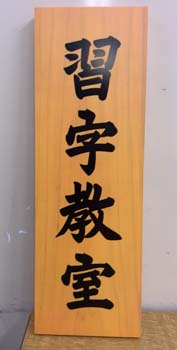 習字教室